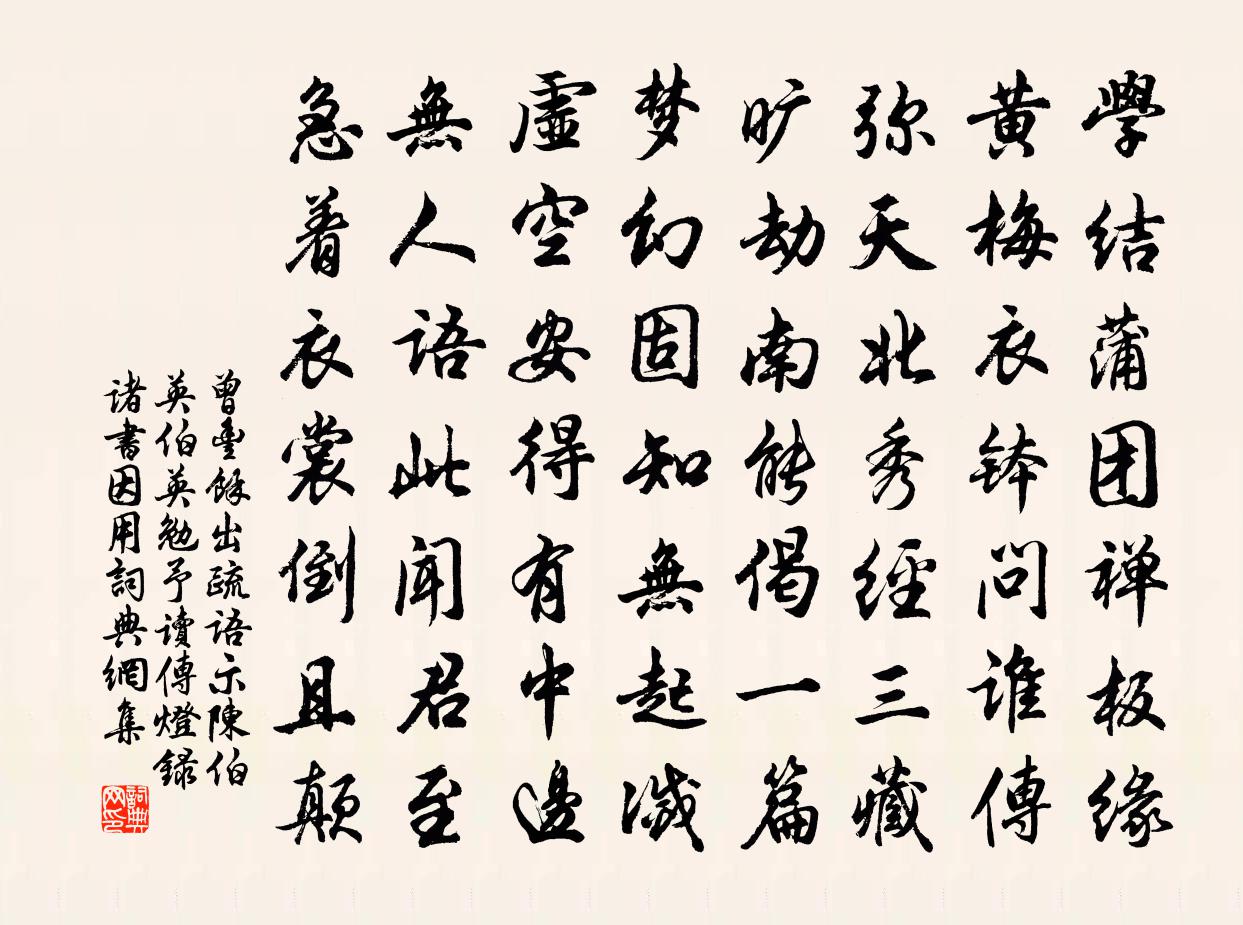 學结蒲团禅板缘
黄梅衣钵问谁傳
弥天北秀經三藏
旷劫南能偈一篇
梦幻固知無起滅
虛空安得有中邊
無人語此闻君至
急着衣裳倒且颠
曾豊餘出疏语示陳伯
英伯英勉予讀傳燈録
诸書因用詞典網集
詞典网印